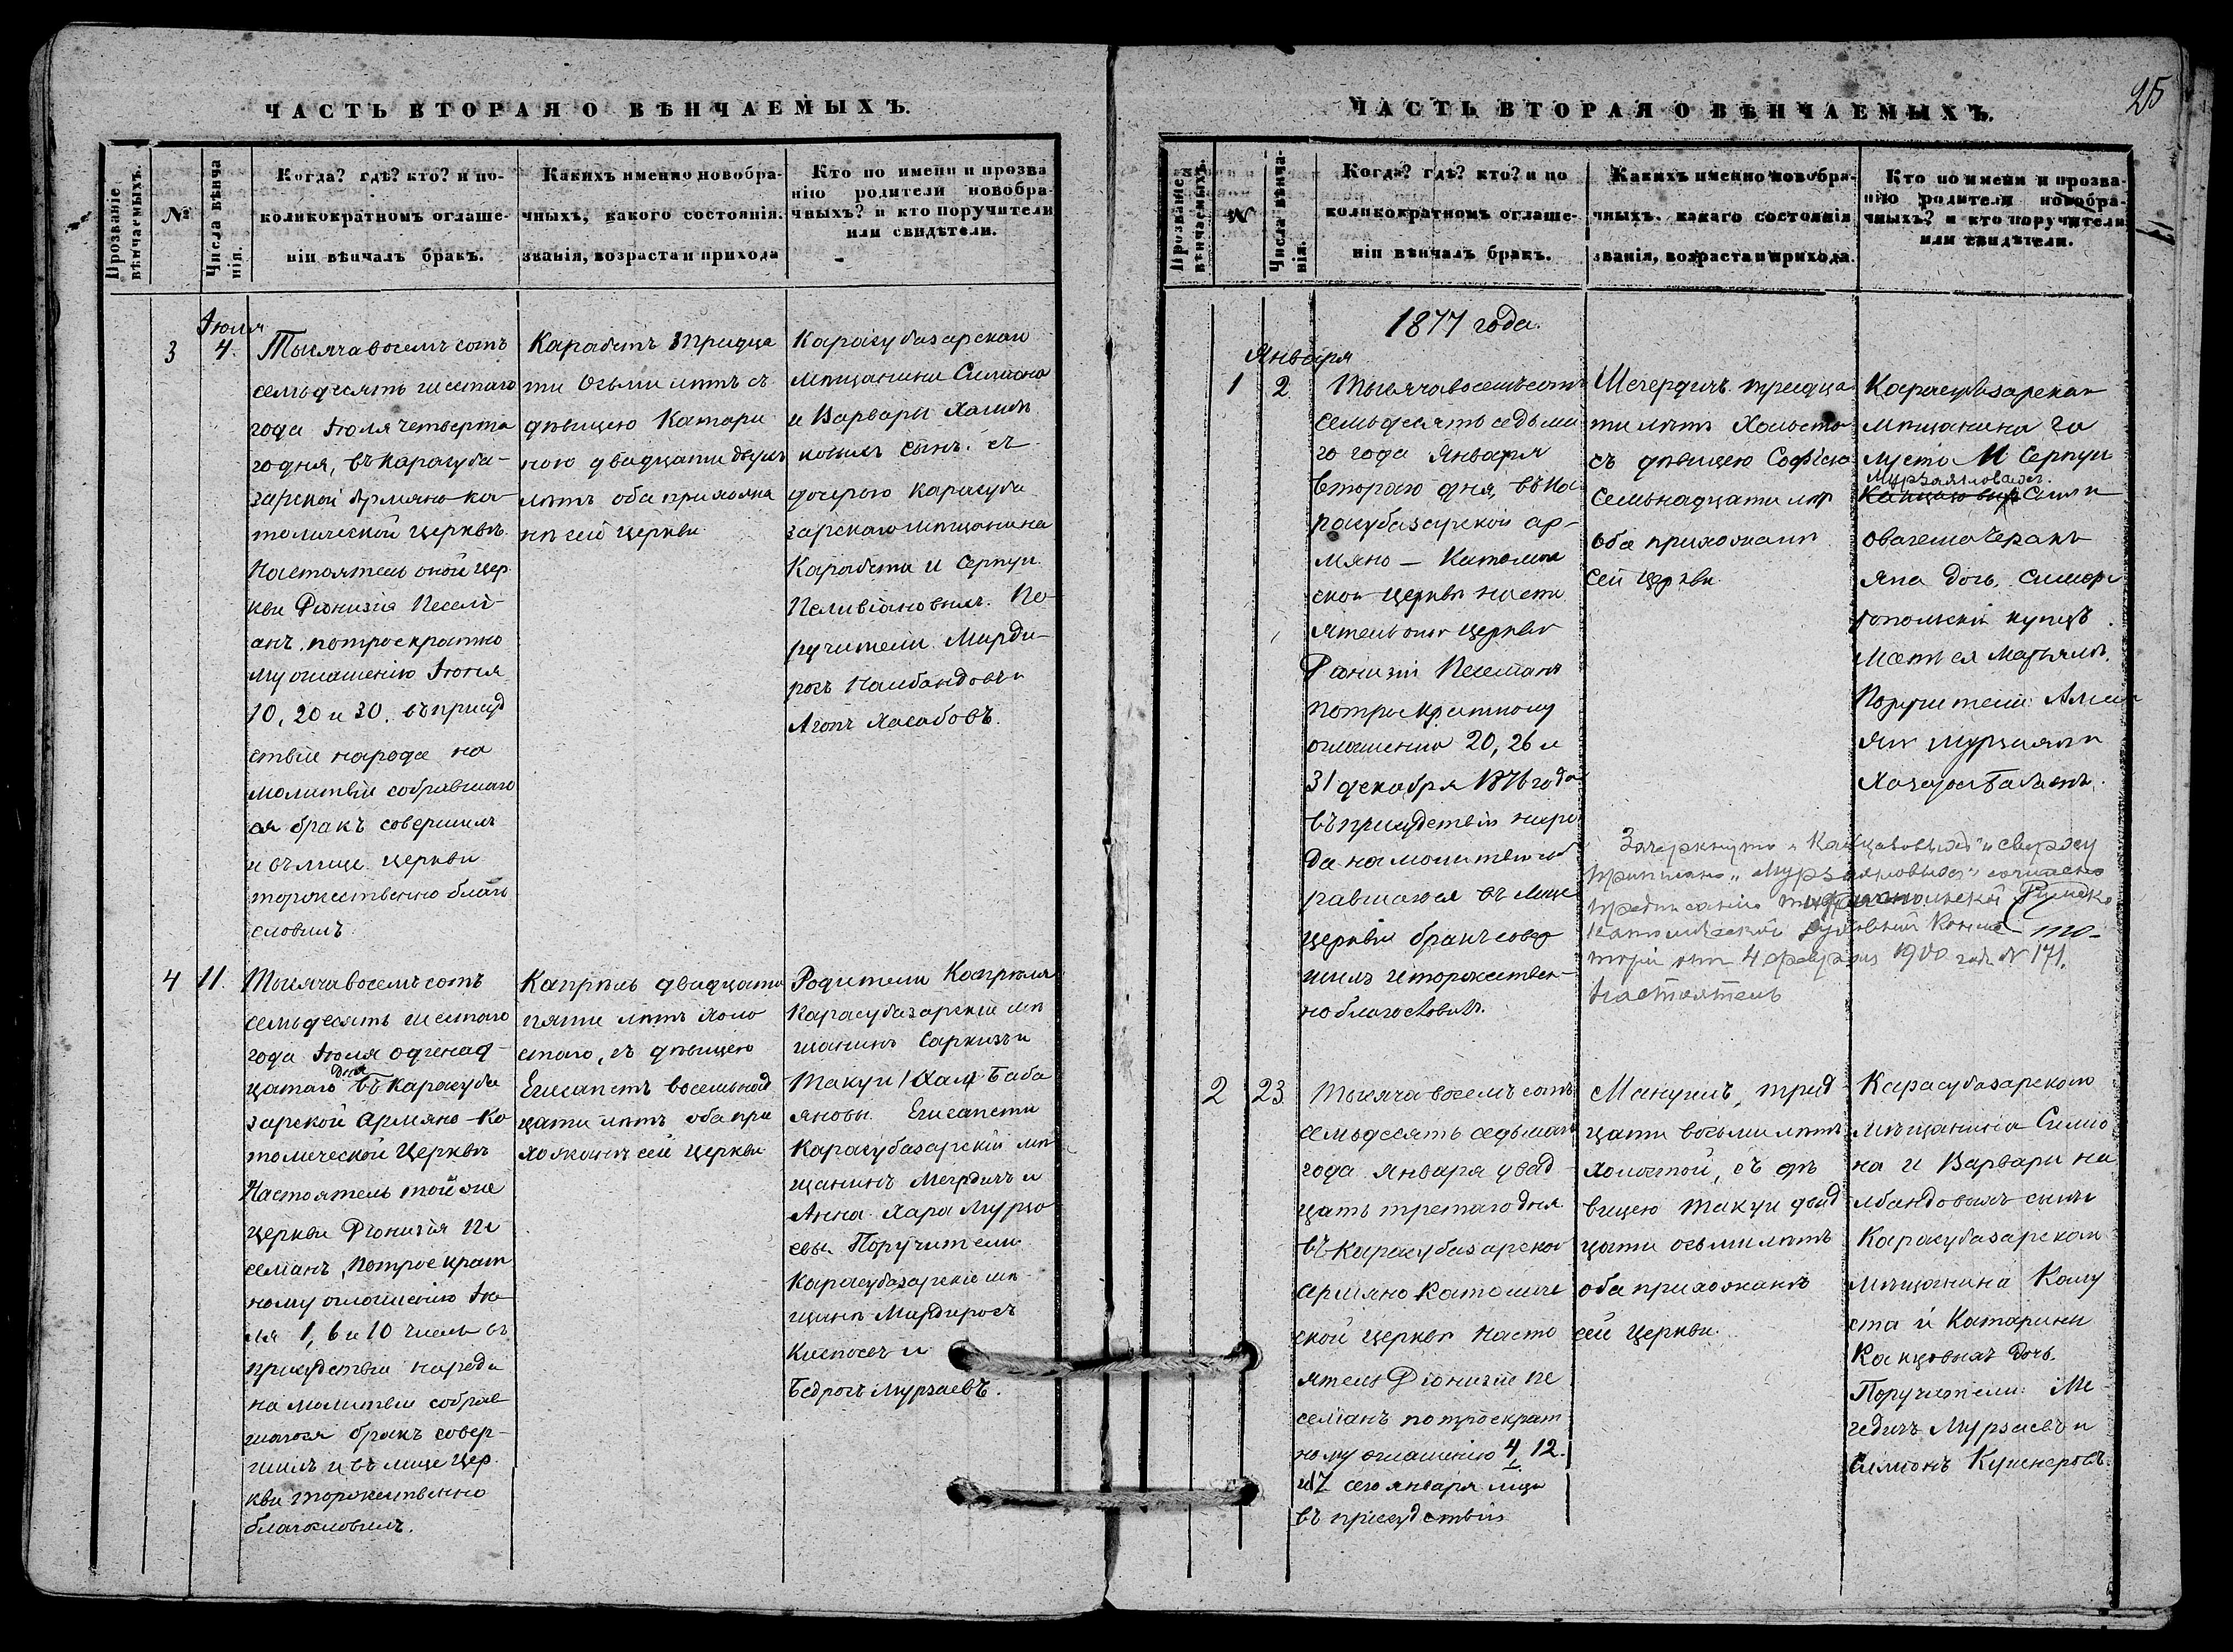 ЧАСТЬ ВТОРАЯ О ВѢНЧАЕМЫХЪ.
Прозваніе вѣнчаемыхъ.
№
Числа вѣнчанія.
Когда? гдѣ? кто? и по-
коликократномъ оглаше-
ніи вѣнчалъ бракъ.
Какихъ именно новобра-
чныхъ, какого состоянія.
званія, возраста и прихода
Кто по имени и прозва
нію родители новобра-
чныхъ? и кто поручители
или свидѣтели.
3
Іюля
4.
Тысяча восемъ сотъ
семьдесять шестаго
года Іюля четверта
го дня, въ Карасуба-
зарской Армяно-ка-
толической церквѣ
Настоятель оной цер
кви Діонизія Песели-
анъ, по трое кратно
му оглашенію Іюня
10, 20 и 30. въ присуд
ствіи народа на
молитвіи собравшаго
ся бракъ совершилъ
и въ лице церкви
торжественно благо
словилъ
Карабетъ тридца
ти осьми лѣтъ съ
дѣвицею Катари
ною двадцати двухъ
лѣтъ оба прихожа
нѣ сей церкви
Карасубазарскаи
мѣщанини Симиона
и Варвары
сынъ. съ
дочерью Карасуба
зарскаго мѣщанина
Карабета и Серпуи
По-
ручители Мирди-
росъ Налбандовъ и
Агопъ Хасабовъ.
4
11.
Тысяча восемъ сотъ
семьдесять шестаго
года Іюля одинад-
цатаго дня въ Карасуба
зарской Армяно-Ка
толической Церквѣ
Настоятель той же
церкви Діонизія Пе
селианъ, по трое крат
ному оглашенію Ію-
ля 1, 6 и 10 числъ въ
присудствіи народа
на молитвіи собрав
шагося бракъ совер-
шилъ и въ лице Цер.
кви торжественно
благословилъ.
Капріѣль двадцати
пяти лѣтъ холо
стаго, съ дѣвицею
Егисапетъ восемьнад
цати лѣтъ оба при
хожанѣ сей церкви
Родители Капріѣля
Карасубазарскіи мѣ
щанинъ Саркизъ и
Такуи Баба
яновы Егисапети
Карасубазарскій мѣ
щанинъ Мегрдичъ и
Анна Кара Мурза
евы. Поручители
Карасубазарскіе мѣ-
щанѣ Мардиросъ
и
Бедросъ Мурзаевъ.
25
ЧАСТЬ ВТОРАЯ О ВѢНЧАЕМЫХЪ.
Прозваніе вѣнчаемыхъ.
№
Числа вѣнча-
нія.
Когда? гдѣ? кто? и по
коликократномъ оглаше-
ніи вѣнчалъ бракъ.
Какихъ именно новобра-
чныхъ. какаго состоянія
званія, возраста и прихода.
Кто по имени и прозва-
нію родители новобра-
чныхъ? и кто поручители
или свидѣтели.
1877 года.
Января
1
2.
Тысяча восемъ сотъ
семьдесять седьма
го года Января
втораго дня, въ Ка
расубазарской ар-
мяно-Католиче
ской церквѣ насто
ятель оной церкви
Діонизій Песелианъ
по трое кратному
оглашенію 20, 26 и
31 декабря 1876 года
въ присудствіи наро
да на молитвіи соб
равшагося въ лице
церкви бракъ совер
шилъ и торжествен-
но благословилъ.
Мегердичъ тридца
ти лѣтъ Холостой
съ дѣвицею Софіею
Семьнадцати лѣтъ
оба прихожанѣ
сей Церкви
Карасубазарскаи
мѣщанина Га
луста и Серпуи
дочь. Симфе
ропольскій купецъ
мать ея Марьямъ.
Поручители
и
Зачеркнуто и сверху
приписано „ " согласно
предписанію Римско
католической Духовной Консис-
торіи отъ 4 февраля 1900 года № 171.
Настоятель
2
23.
Тысяча восемъ сотъ
семьдесять седьмаго
года Января двад-
цать третаго дня
въ Карасубазарской
армяно католиче
ской церквѣ насто
ятель Діонизіе Пе
селианъ по трое крат
ному оглашенію 4, 12.
и 17 сего января мца
въ присудствіи
Манукъ, трид
цати восьми лѣтъ
холостой, съ дѣ
вицею Такуи двад
цати осьми лѣтъ
оба прихожанѣ
сей Церкви.
Карасубазарскаго
мѣщанина Симио
на и Варвары На
лбандовыхъ сынъ
Карасубазарскаи
мѣщанина Калу
ста и Катарини
Капцовыхъ дочь.
Поручители: Ме
гедичъ Мурзаевъ и
Симіонъ